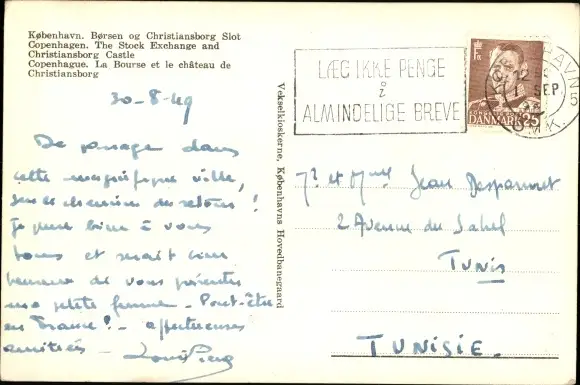 København. Børsen og Christiansborg Slot
Copenhagen. The Stock Exchange and
Christiansborg Castle
Copenhague. La Bourse et le château de
Christiansborg
30-8-49
De passage dans
cette magnifique ville,
sur le chemin du retour!
Je pense bien à vous
tous et serait bien
heureux de vous présenter
ma petite femme - Peut-être
en France! - affectueuses
amitiés -
Vekselkioskerne, Københavns Hovedbanegaard
LÆG IKKE PENGE
i
ALMINDELIGE BREVE
KØBENHAVN
12
1 SEP
OMK.
DANMARK 25
Mr et Mme Jean Desparmet
2 Avenue du Sahel
TUNIS
TUNISIE.